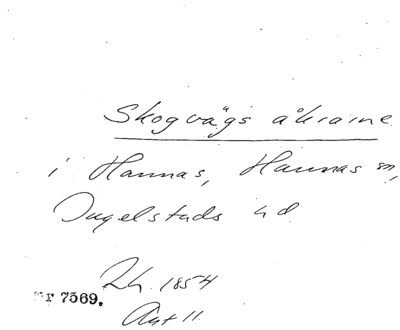 Skogvägs åkrarne
i Hannas, Hannas sn,
Ingelstads hd
Lh. 1854
Nr 7569.
Akt 11.